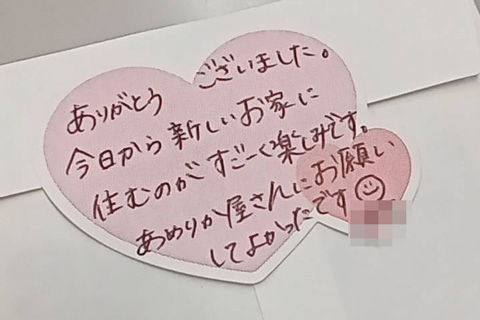 ありがとう ございました。
今日から新しいお家に
住むのがすごーく楽しみです。
あめりか屋さんにお願い
してよかったです